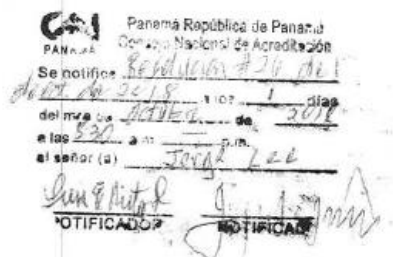 Panamá República de Panamá
PANAMÁ Consejo Nacional de Acreditación
Se notifica Resolución #26 de 1
de 2018 a los 1 días
del mes de octubre de 2018
a las 830 a.m. p.m.
al señor (a) Jorge Lee
NOTIFICADOR NOTIFICADO